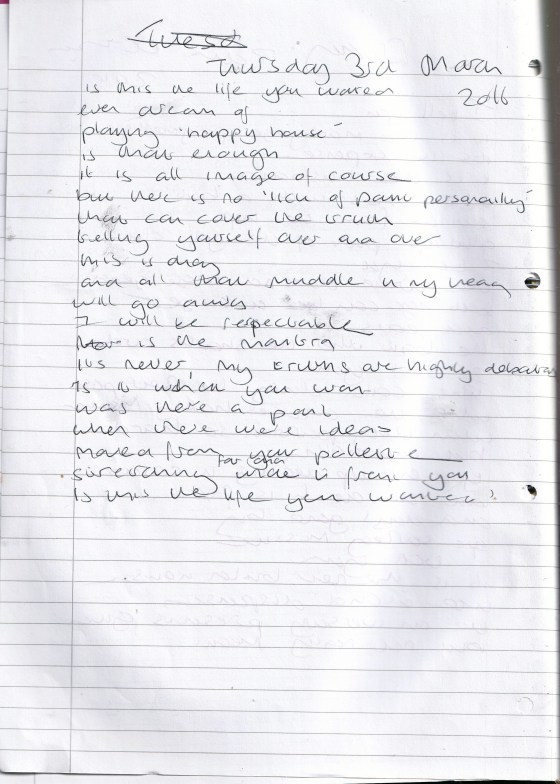 Tuesd
Thursday 3rd March
is this the life you wanted 2016
ever dream of
playing 'happy house'
is that enough
it is all image of course
but there is no 'lick of paint personality'
that can cover the truth
telling yourself over and over
this is okay
and all that muddle in my head
will go away
I will be respectable
is the mantra
it's never, my truths are highly
Is it which you want
was there a point
when there were ideas
from your pallette
stretching far and wide in front you
Is this the life you wanted?